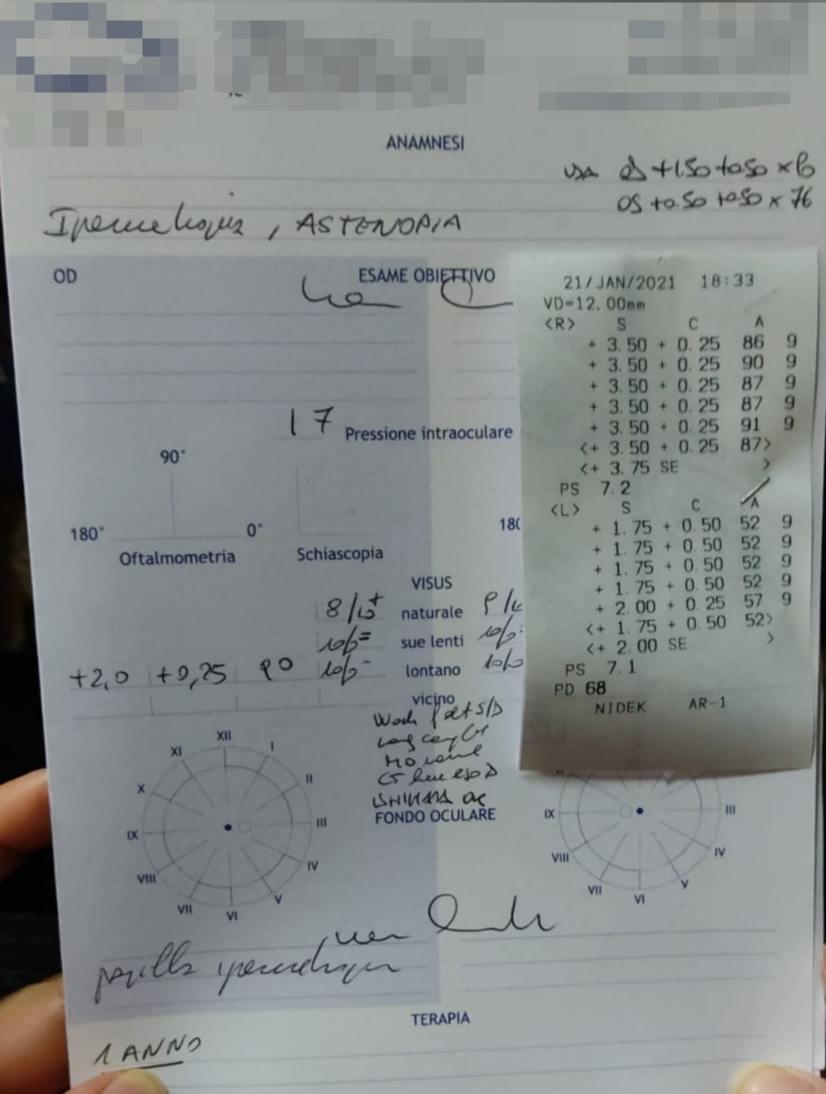 ANAMNESI
USA OD +1.50 +0.50 x
OS +0.50 +0.50 x 76
Ipermetropia, ASTENOPIA
OD
ESAME OBIETTIVO
17
Pressione intraoculare
90°
180°
0°
180
Oftalmometria
Schiascopia
VISUS
8/10+
naturale
10/10=
sue lenti
+2,0 +0,25 90 10/10-
lontano
vicino
21/JAN/2021 18:33
VD=12.00mm
<R> S C A
+ 3.50 + 0.25 86 9
+ 3.50 + 0.25 90 9
+ 3.50 + 0.25 87 9
+ 3.50 + 0.25 87 9
+ 3.50 + 0.25 91 9
<+ 3.50 + 0.25 87>
<+ 3.75 SE >
PS 7.2
<L> S C A
+ 1.75 + 0.50 52 9
+ 1.75 + 0.50 52 9
+ 1.75 + 0.50 52 9
+ 1.75 + 0.50 52 9
+ 2.00 + 0.25 57 9
<+ 1.75 + 0.50 52>
<+ 2.00 SE >
PS 7.1
PD 68
NIDEK AR-1
ISHIHARA OK
FONDO OCULARE
XII
XI
I
X
II
IX
III
VIII
IV
VII
V
VI
IX
III
VIII
IV
VII
V
VI
papilla ipermetropica
TERAPIA
1 ANNO